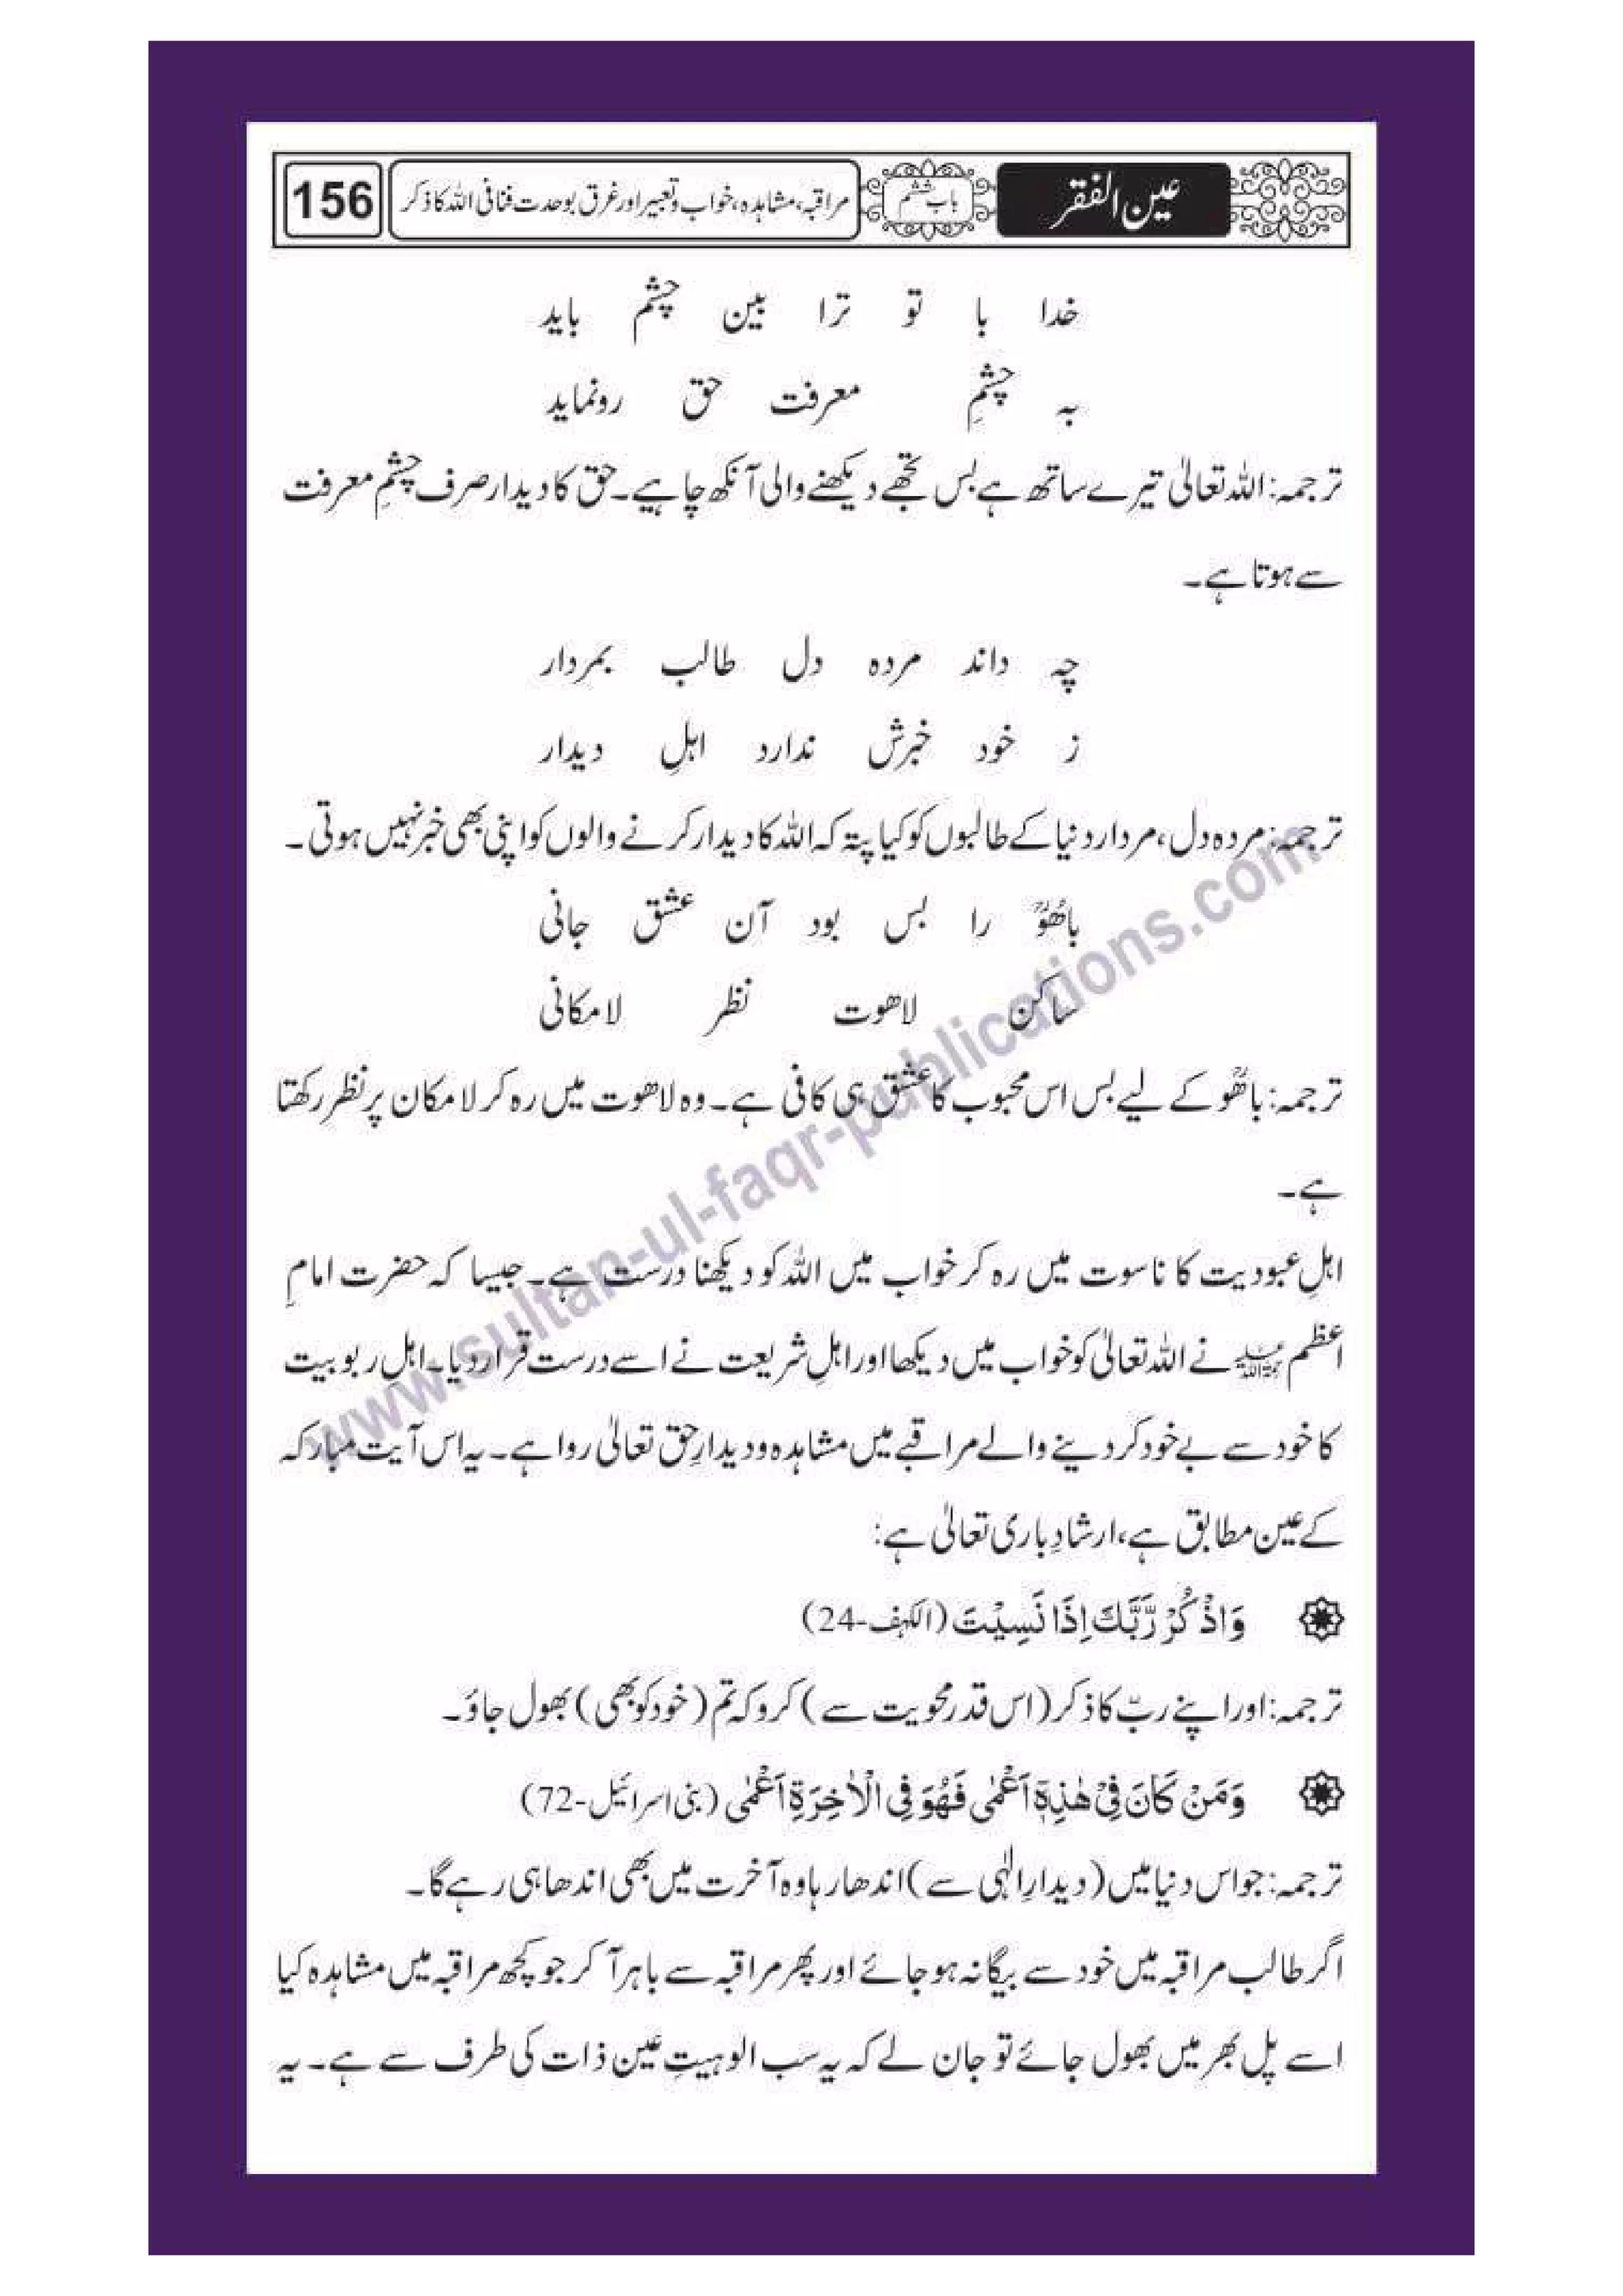 عین الفقر
باب ششم
مراقبہ، مشاہدہ، خواب و تعبیر اور غرق بوحدت فنا فی اللہ کا ذکر
156
خدا با تو ترا بین چشم باید
بہ چشمِ معرفت حق رونماید
ترجمہ: اللہ تعالیٰ تیرے ساتھ ہے بس تجھے دیکھنے والی آنکھ چاہیے۔ حق کا دیدار صرف چشمِ معرفت
سے ہوتا ہے۔
چہ داند مردہ دل طالب بمردار
ز خود خبرش ندارد اہلِ دیدار
ترجمہ: مردہ دل، مردار دنیا کے طالبوں کو کیا پتہ کہ اللہ کا دیدار کرنے والوں کو اپنی بھی خبر نہیں ہوتی۔
باھُوؒ را بس بود آن عشق جانی
ساکن لاھوت نظر لامکانی
ترجمہ: باھُوؒ کے لیے بس اس محبوب کا عشق ہی کافی ہے۔ وہ لاھوت میں رہ کر لامکان پر نظر رکھتا
ہے۔
اہلِ عبودیت کا ناسوت میں رہ کر خواب میں اللہ کو دیکھنا درست ہے۔ جیسا کہ حضرت امامِ
اعظم رحمۃ اللہ علیہ نے اللہ تعالیٰ کو خواب میں دیکھا اور اہلِ شریعت نے اسے درست قرار دیا۔ اہلِ ربوبیت
کا خود سے بے خود کر دینے والے مراقبے میں مشاہدہ و دیدارِ حق تعالیٰ روا ہے۔ یہ اس آیت مبارکہ
کے عین مطابق ہے، ارشادِ باری تعالیٰ ہے:
وَاذْكُرْ رَّبَّكَ اِذَا نَسِيْتَ (الکہف-24)
ترجمہ: اور اپنے ربّ کا ذکر (اس قدر محویت سے) کرو کہ تم (خود کو بھی) بھول جاؤ۔
وَمَنْ كَانَ فِيْ هٰذِهٖٓ اَعْمٰى فَهُوَ فِي الْاٰخِرَةِ اَعْمٰى (بنی اسرائیل-72)
ترجمہ: جو اس دنیا میں (دیدارِ الٰہی سے) اندھا رہا وہ آخرت میں بھی اندھا ہی رہے گا۔
اگر طالب مراقبہ میں خود سے بیگانہ ہو جائے اور پھر مراقبہ سے باہر آ کر جو کچھ مراقبہ میں مشاہدہ کیا
اسے پل بھر میں بھول جائے تو جان لے کہ یہ سب الوہیتِ عین ذات کی طرف سے ہے۔ یہ
www.sultan-ul-faqr-publications.com